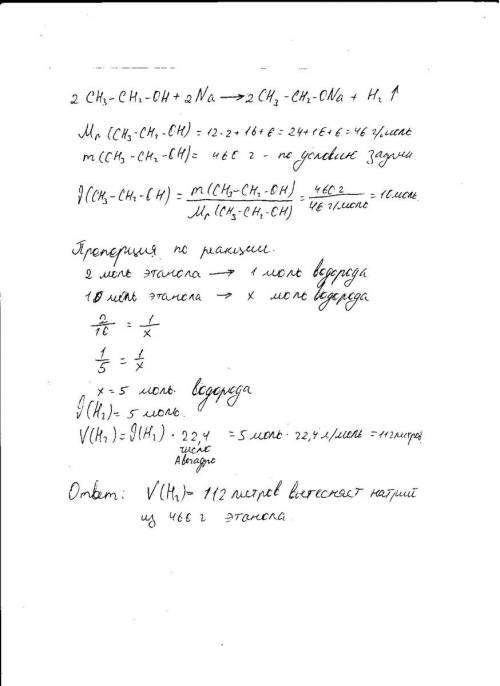 2 CH₃-CH₂-OH + 2Na ⟶ 2CH₃-CH₂-ONa + H₂ ↑
Mr (CH₃-CH₂-OH) = 12·2 + 16 + 6 = 24+16+6 = 46 г/моль
m (CH₃-CH₂-OH) = 460 г - по условию задачи
ϑ(CH₃-CH₂-OH) = m(CH₃-CH₂-OH) / Mr (CH₃-CH₂-OH) = 460 г / 46 г/моль = 10 моль
Пропорция по реакции.
2 моль этанола → 1 моль водорода
10 моль этанола → x моль водорода
2/10 = 1/x
1/5 = 1/x
x = 5 моль водорода
ϑ(H₂) = 5 моль.
V(H₂) = ϑ(H₂) · 22,4 = 5 моль · 22,4 л/моль = 112 литров
число
Авогадро
Ответ: V(H₂) = 112 литров вытесняет натрий
из 460 г этанола